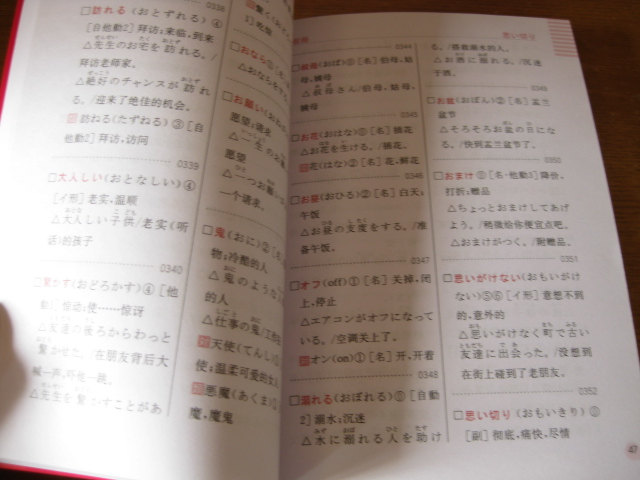 0338
□訪れる(おとずれる)④
[自他動2]拜访;来临,到来
△先生のお宅を訪れる。/
拜访老师家。
△絶好のチャンスが訪れ
る。/迎来了绝佳的机会。
訪ねる(たずねる)③[自
他動2]拜访,访问
0339
□大人しい(おとなしい)④
[イ形]老实,温顺
△大人しい子供/老实(听
话)的孩子
0340
□驚かす(おどろかす)④[他
惊动;使……惊讶
△友達の後ろからわっと
驚かせた。/在朋友背后大
喊一声,吓他一跳。
△先生を驚かすことがあ
1]吃饭
□おなら
△おならを
□お願い
愿望;请求
△一生のお
愿望
△一つお願い
一个请求。
□鬼(おに)②[名
物;冷酷的人
△鬼のような
的人
△仕事の鬼/工作
天使(てんし)
使;温柔可爱的女人
悪魔(あくま)
魔,魔鬼
0344
□叔母(おば)⓪[名]伯母,姑
母,姨母
△叔母さん/伯母,姑母,
姨母
0345
□お花(おはな)⓪[名]插花
△お花を生ける。/插花。
花(はな)②[名]花,鲜花
0346
□お昼(おひる)②[名]白天;
午饭
△お昼の支度をする。/准
备午饭。
0347
□オフ(off)①[名]关掉,闭
上,停止
△エアコンがオフになって
いる。/空调关上了。
オン(on)①[名]开,开着
0348
□溺れる(おぼれる)⓪[自動
2]溺水;沉迷
△水に溺れる人を助け
思い切り
る。/拯救溺水的人。
△お酒に溺れる。/沉迷
于酒。
0349
□お盆(おぼん)②[名]盂兰
盆节
△そろそろお盆の日にな
る。/快到盂兰盆节了。
0350
□おまけ⓪[名·他動3]降价,
打折;赠品
△ちょっとおまけしてあげ
よう。/稍微给你便宜点吧。
△おまけがつく。/附赠品。
0351
□思いがけない(おもいがけ
ない)⑤⑥[イ形]意想不到
的,意外的
△思いがけなく町で古い
友達に出会った。/没想到
在街上碰到了老朋友。
0352
□思い切り(おもいきり)⓪
[副]彻底,痛快,尽情
47